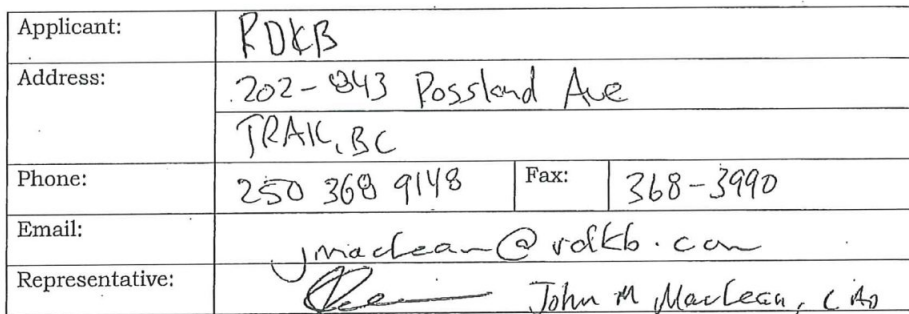 Applicant: RDKB
Address: 202-843 Rossland Ave
TRAIL, BC
Phone: 250 368 9148 Fax: 368-3990
Email: jmaclean@rdkb.com
Representative: John M MacLean, CAO